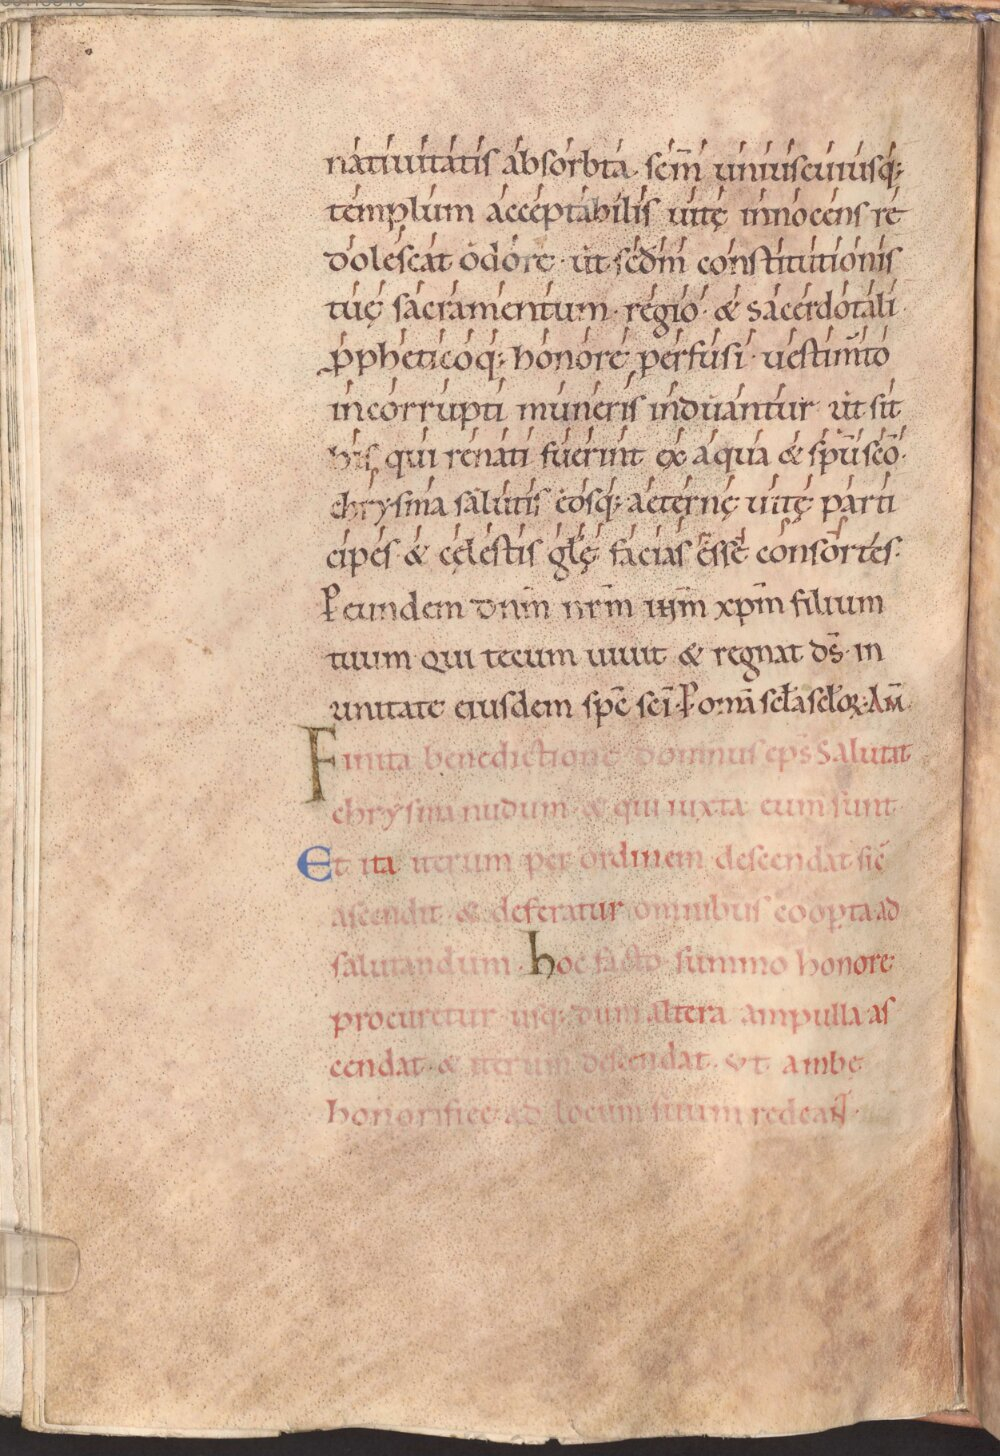 natiuitatis absorbta. scm̄ uniuscuiusq;
templum acceptabilis uitę innocens re
dolescat odore. ut scdm̄ constitutionis
tuę sacramentum. regio. & sacerdotali.
ꝓpheticoq; honore perfusi. uestim̄to
incorrupti muneris induantur ut sit
his qui renati fuerint ex aqua & sp̄u sc̄o.
chrysma salutis eosq; aeternę uitę parti
cipes & cęlestis gl̄ę facias esse consortes.
P eundem dnm̄ nr̄m ihm̄ xpm̄ filium
tuum qui tecum uiuit & regnat ds̄. in
unitate eiusdem sp̄c sc̄i. P om̄a scl̄a scl̄oꝝ. AM̄
Finita benedictione domnus ep̄s salutat
chrysma nudum. & qui iuxta eum sunt.
Et ita iterum per ordinem descendat sic̄
ascendit. & deferatur omnibus coopta ad
salutandum. hoc facto summo honore
procuretur usq; dum altera ampulla as
cendat. & iterum descendat. ut ambę
honorifice ad locum suum redeant.